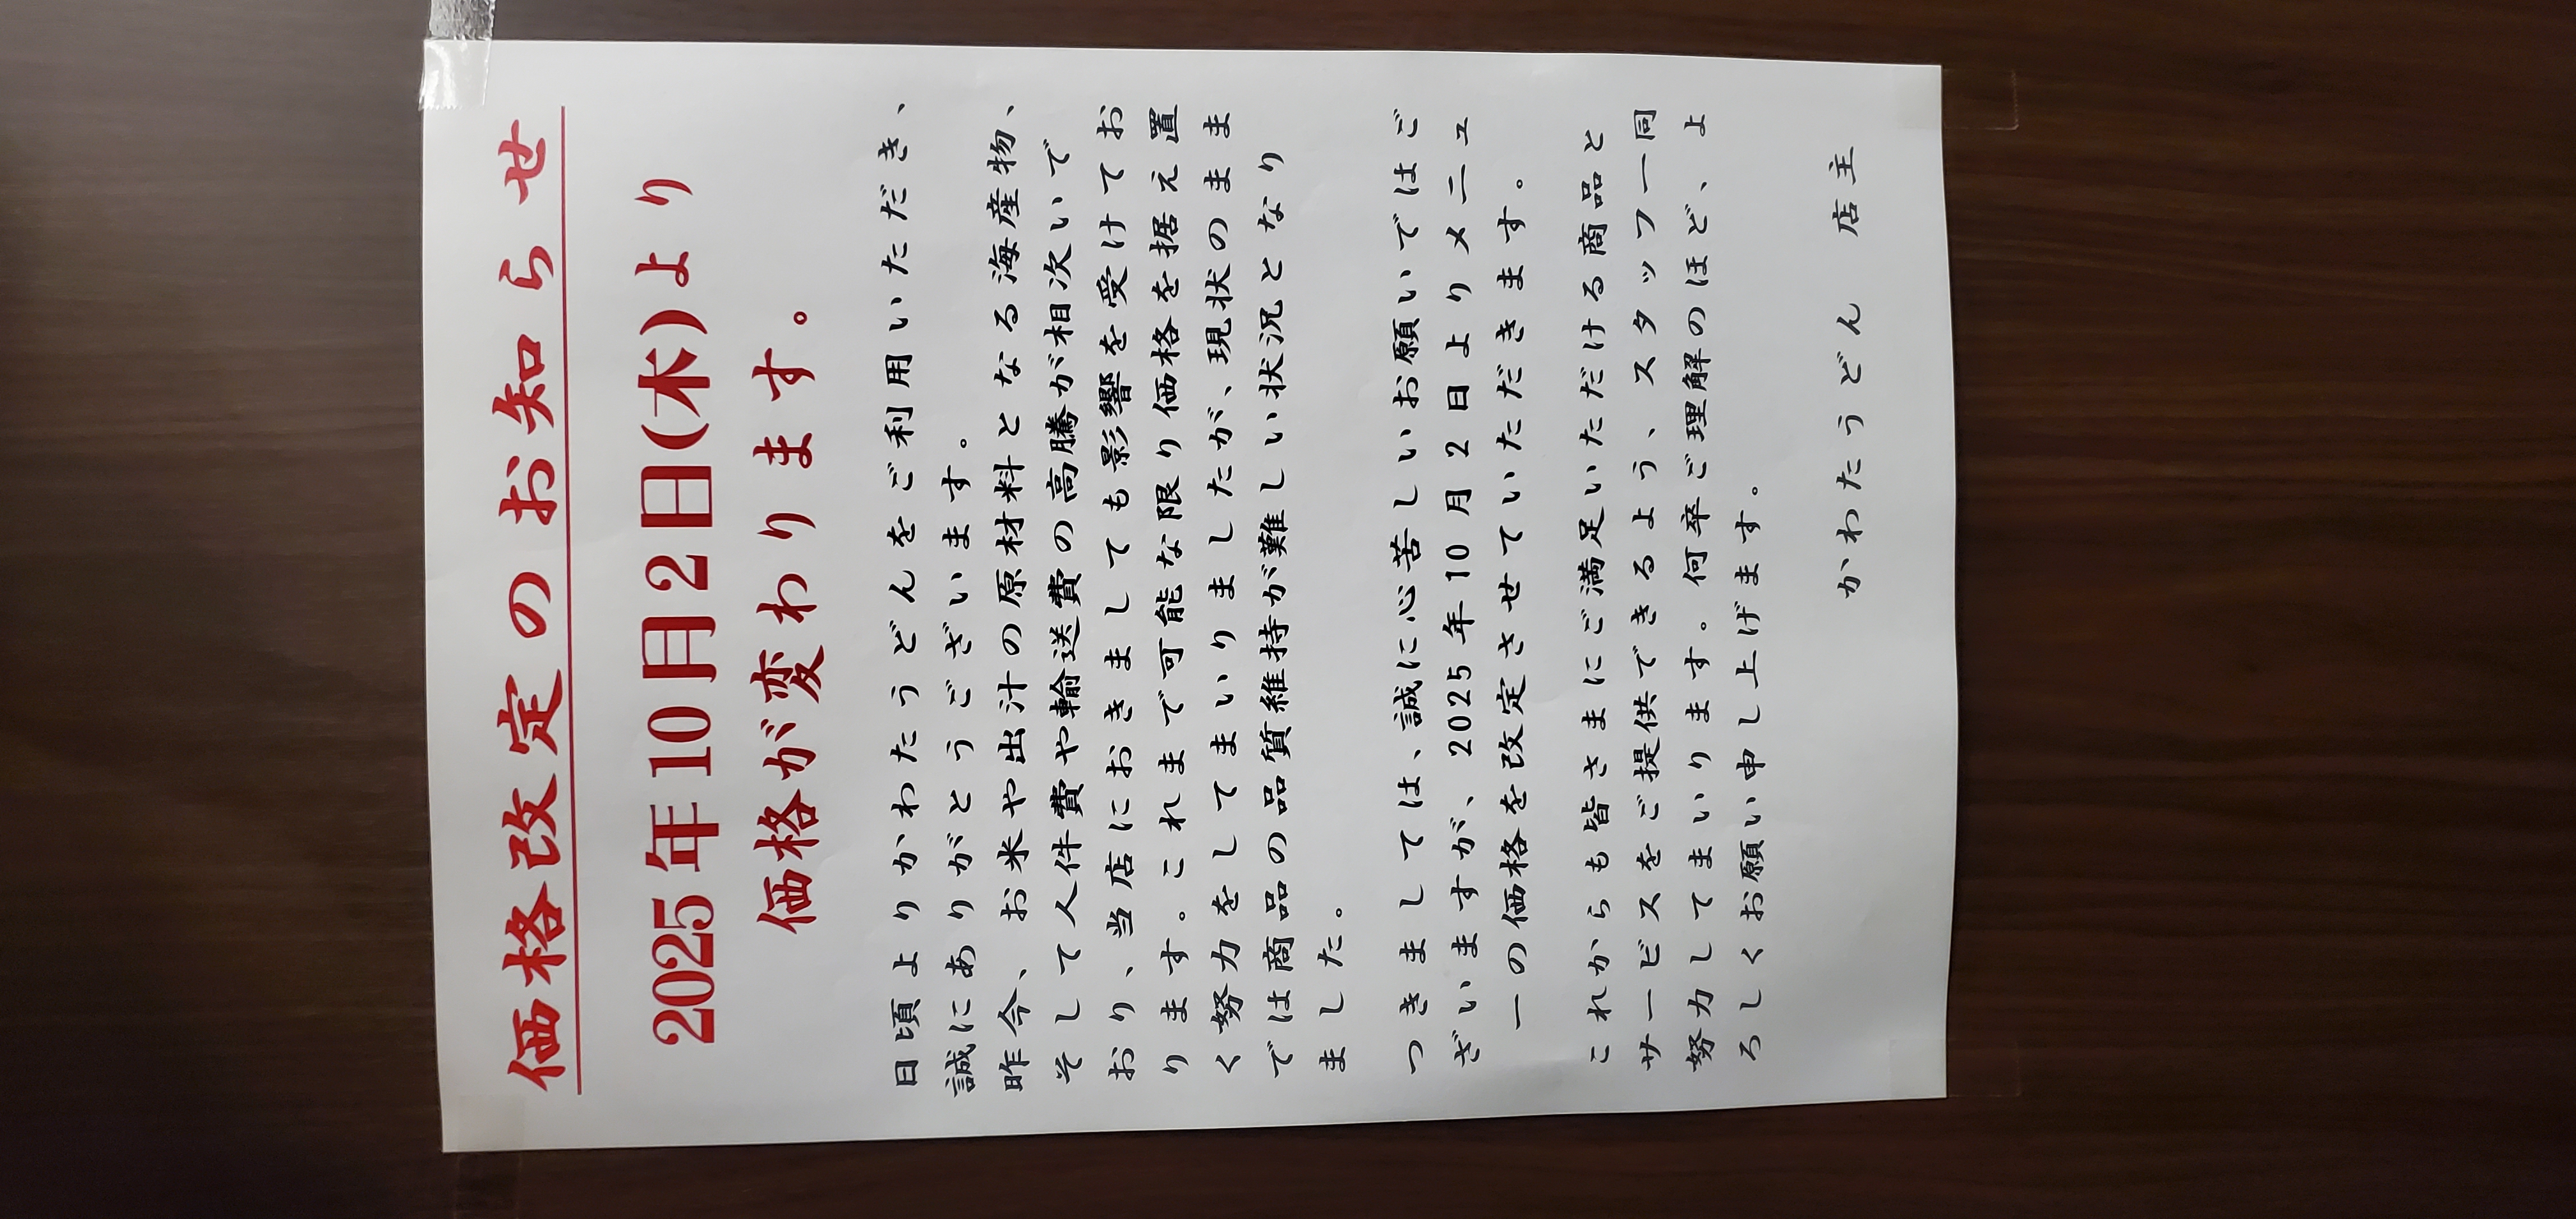 価格改定のお知らせ
2025年10月2日(木)より
価格が変わります。
日頃よりかわたうどんをご利用いただき、
誠にありがとうございます。
昨今、お米や出汁の原材料となる海産物、
そして人件費や輸送費の高騰が相次いで
おり、当店におきましても影響を受けてお
ります。これまで可能な限り価格を据え置
く努力をしてまいりましたが、現状のまま
では商品の品質維持が難しい状況となり
ました。
つきましては、誠に心苦しいお願いではご
ざいますが、2025年10月2日よりメニュ
ーの価格を改定させていただきます。
これからも皆さまにご満足いただける商品と
サービスをご提供できるよう、スタッフ一同
努力してまいります。何卒ご理解のほど、よ
ろしくお願い申し上げます。
かわたうどん 店主